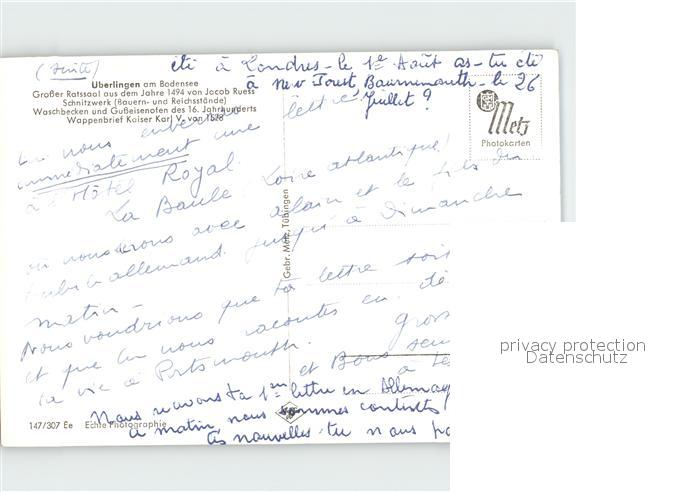 (suite)
été à Londres - le 1er Août as-tu été
à New Forest, Bournemouth - le 26
Juillet ?
Überlingen am Bodensee
Großer Ratssaal aus dem Jahre 1494 von Jacob Ruess
Schnitzwerk (Bauern- und Reichsstände)
Waschbecken und Gußeisenofen des 16. Jahrhunderts
Wappenbrief Kaiser Karl V. von 1528
Metz
Photokarten
nous lettre
immédiatement une
à l'Hôtel Royal.
La Baule, Loire atlantique,
où nous serons avec Alain et le fils du
allemand jusqu'à dimanche
matin -
Nous voudrions que ta lettre soit
et que tu nous racontes en
ta vie à Portsmouth. gros
et Bons
Nous recevons ta 1ère lettre en Allemagne
ce matin nous sommes contents
tes nouvelles - tu nous
Gebr. Metz, Tübingen
147/307 Ee Echte Photographie
privacy protection
Datenschutz